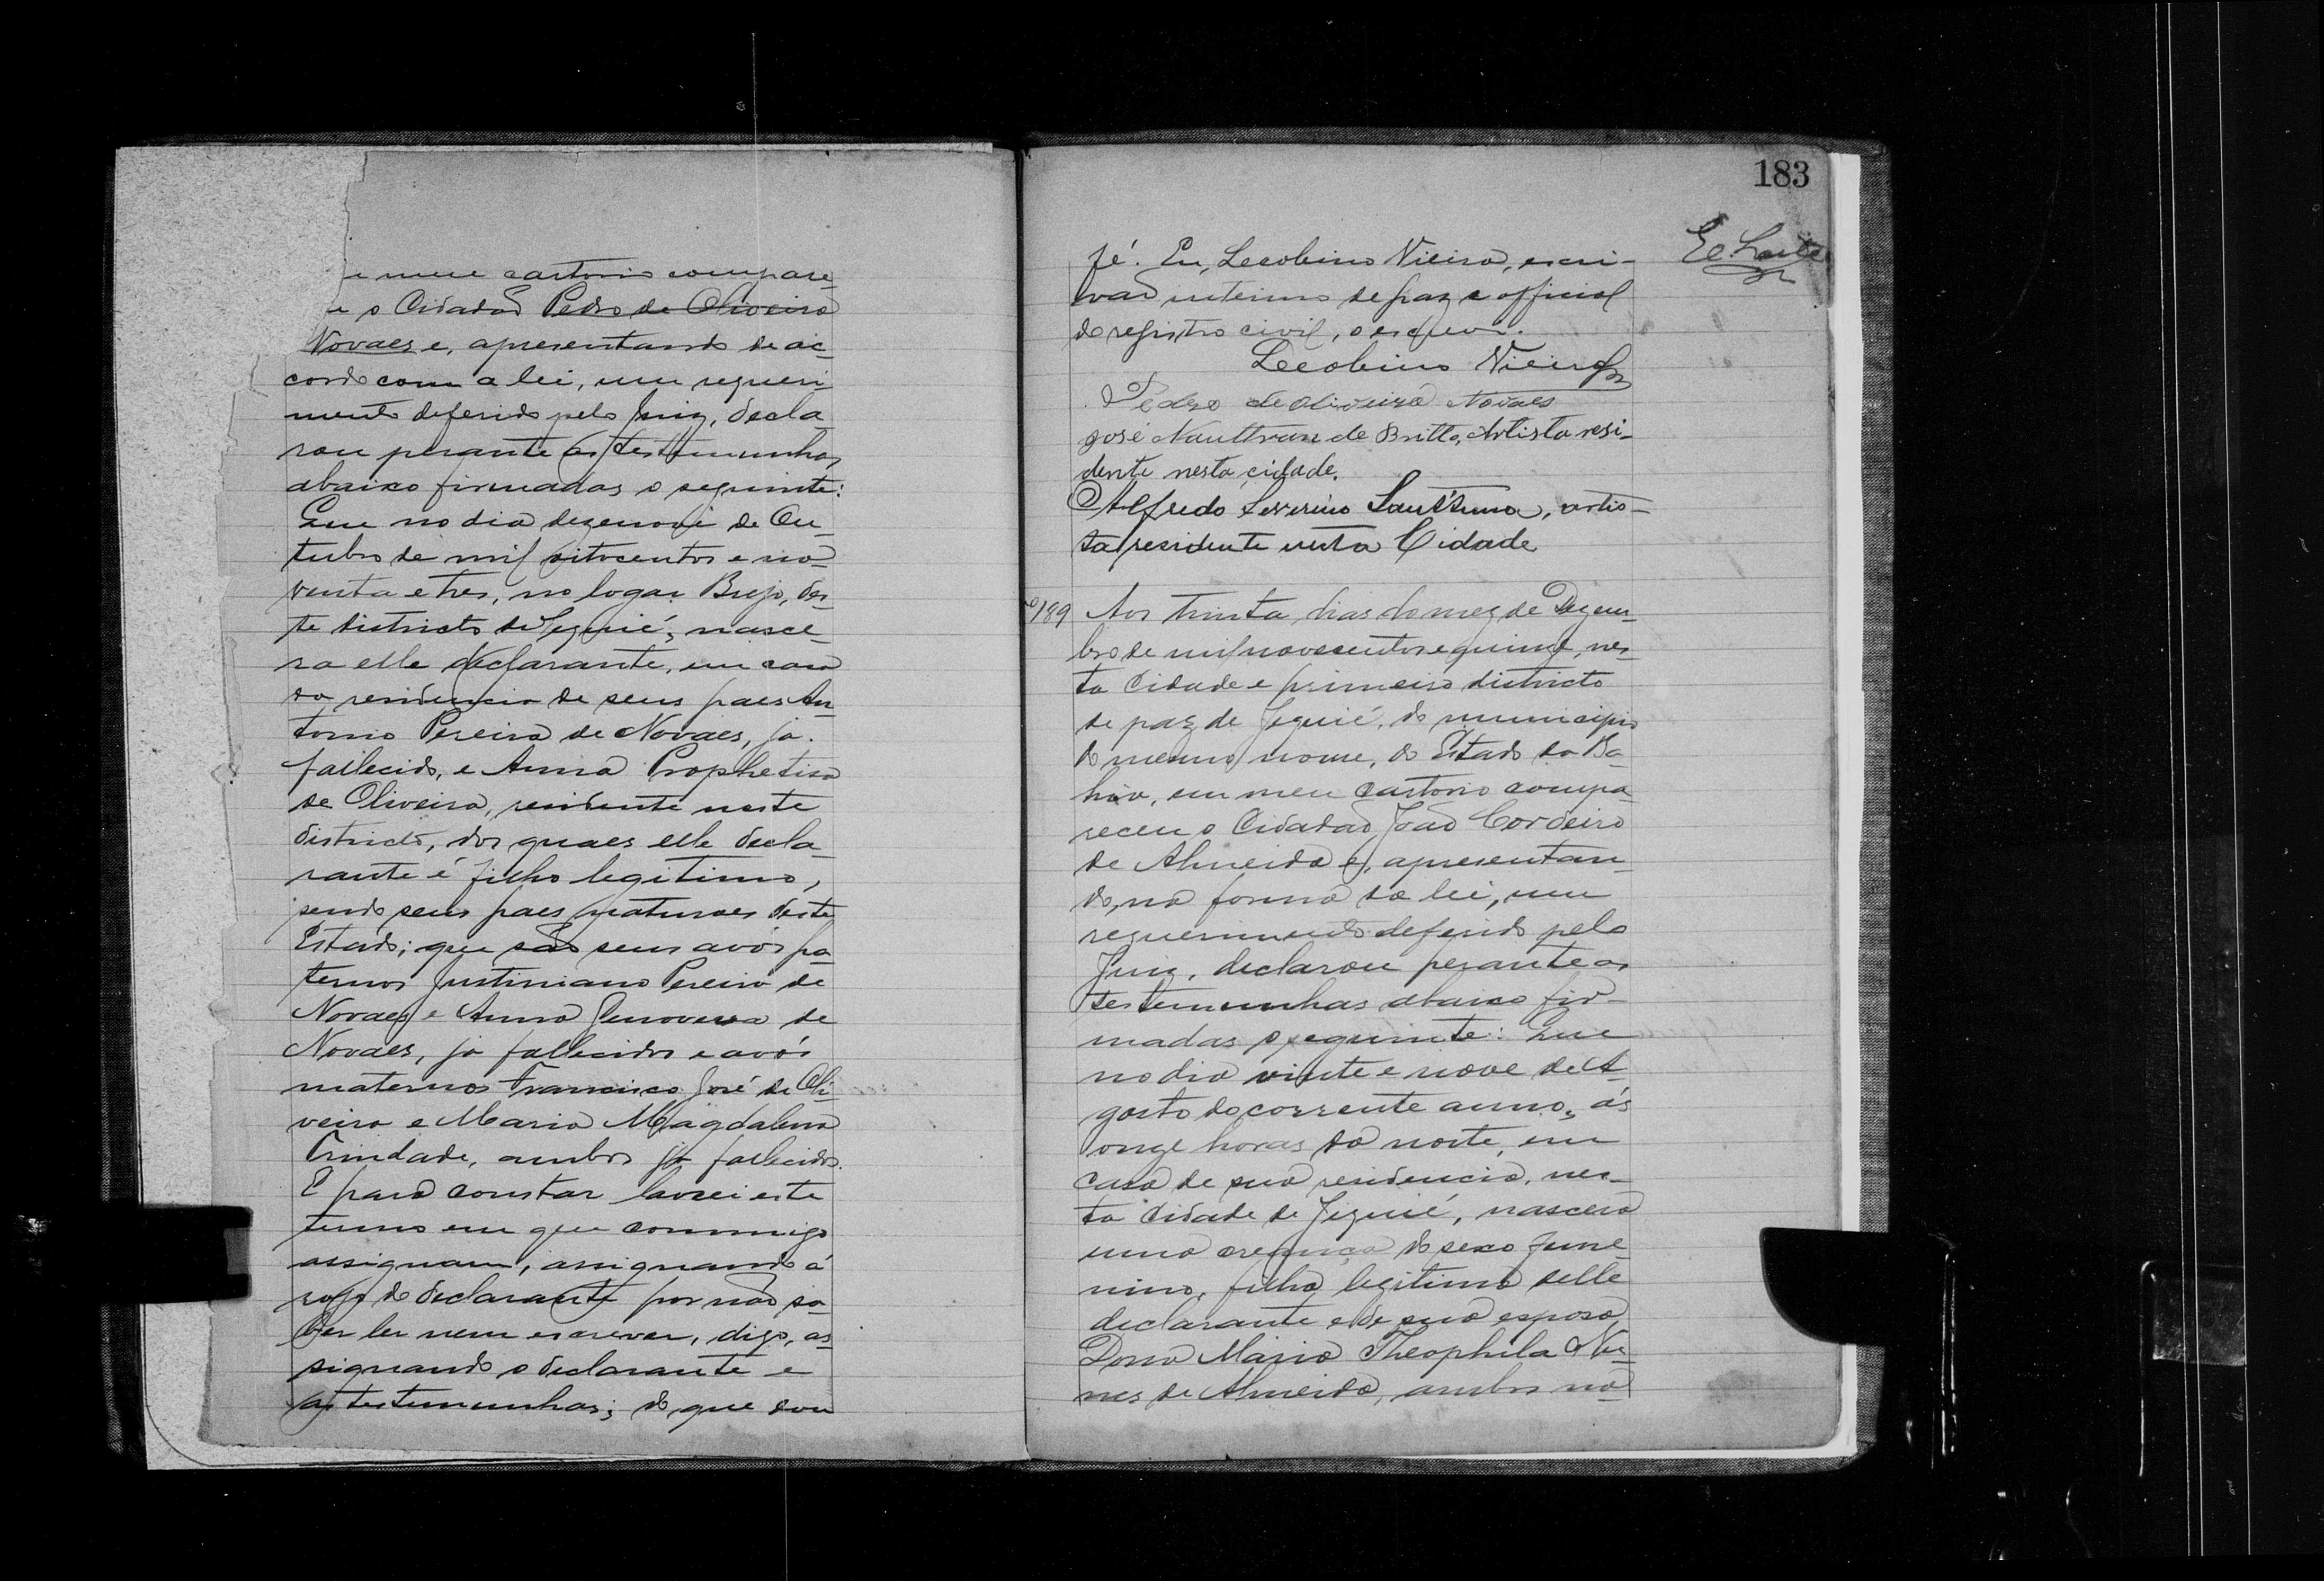 e meu cartorio compare-
u o Cidadão Pedro de Oliveira
Novaes e, apresentando de ac-
cordo com a lei, um requeri-
mento deferido pelo Juiz, decla-
rou perante as testemunhas
abaixo firmadas o seguinte:
Que no dia dezenove de Ou-
tubro de mil oitocentos e no-
venta e tres, no logar Brejo, des-
te districto de Jequié, nasce-
ra elle declarante, em casa
da residencia de seus paes An-
tonio Pereira de Novaes, já
fallecido, e Anna Prophetisa
de Oliveira, residente neste
districto, dos quaes elle decla-
rante é filho legitimo,
sendo seus paes naturaes deste
Estado; que são seus avós pa-
ternos Justiniano Pereira de
Novaes e Anna Genoveva de
Novaes, já fallecidos e avós
maternos Francisco José de Oli-
veira e Maria Magdalena
Trindade, ambos já fallecidos.
E para constar lavrei este
termo em que commigo
assignam, assignando á
rogo do declarante por não sa-
ber ler nem escrever, digo, as-
signando o declarante e
as testemunhas; do que dou
183
fé. Eu, Lecobino Vieira, escri-
vão interino de paz e official
do registro civil, o escrevi.
Lecobino Vieira
Pedro de Oliveira Novaes
José de Britto, Artista resi-
dente nesta cidade.
Alfredo Severino Sant'Anna, artis-
ta residente nesta Cidade
189 Aos trinta dias do mez de Dezem-
bro de mil novecentos e quinze, nes-
ta Cidade e primeiro districto
de paz de Jequié, do municipio
do mesmo nome, do Estado da Ba-
hia, em meu cartorio compa-
receu o Cidadão João Cordeiro
de Almeida e, apresentan-
do, na forma da lei, um
requerimento deferido pelo
Juiz, declarou perante as
testemunhas abaixo fir-
madas o seguinte: Que
no dia vinte e nove de A-
gosto do corrente anno, ás
onze horas da noite, em
casa de sua residencia, nes-
ta Cidade de Jequié, nascera
uma creança do sexo feme-
nino, filha legitima delle
declarante e de sua esposa
Dona Maria Theophila Nu-
nes de Almeida, ambos na-